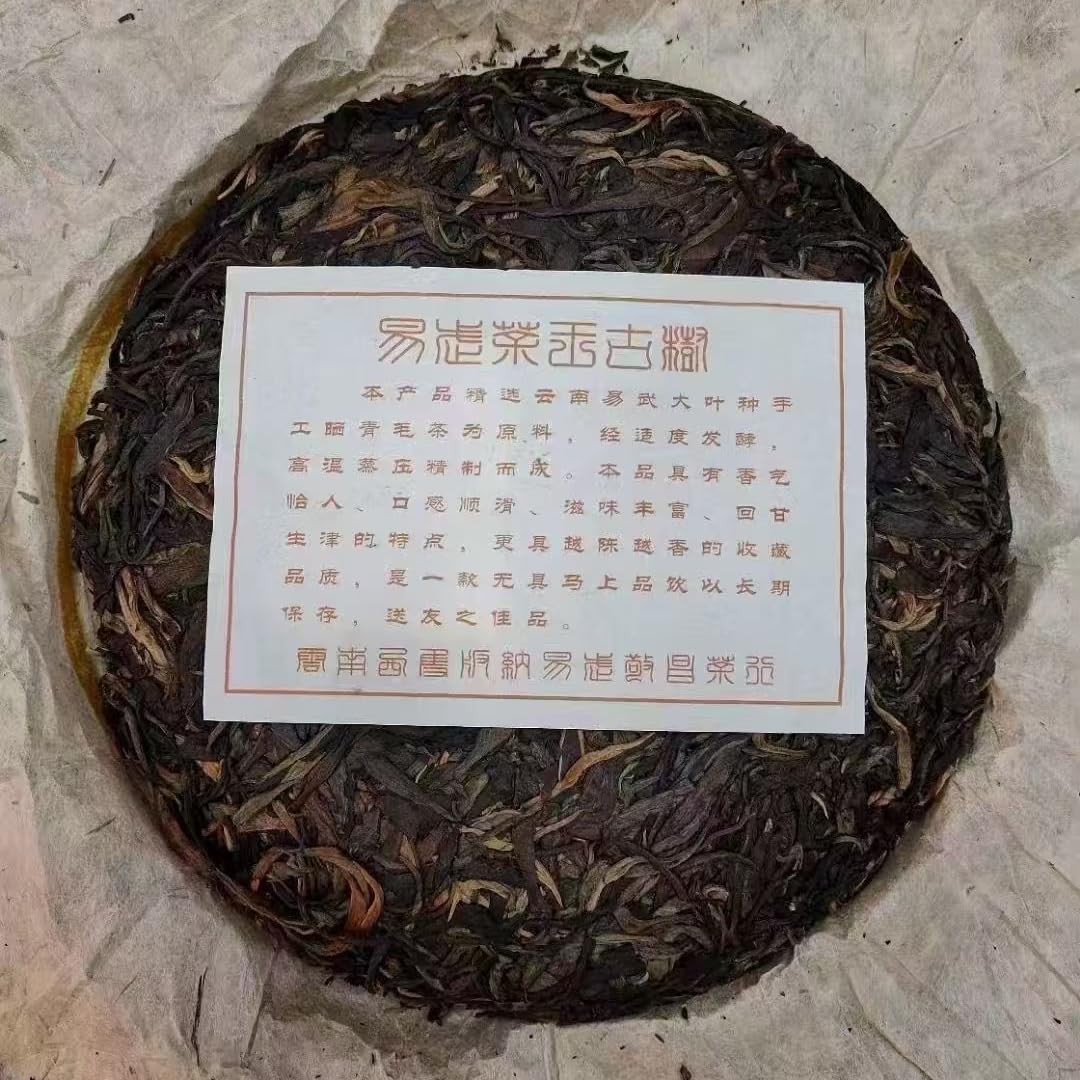 易武茶王古樹
本产品精选云南易武大叶种手
工晒青毛茶为原料，经适度发酵，
高温蒸压精制而成。本品具有香气
怡人、口感顺滑、滋味丰富、回甘
生津的特点，更具越陈越香的收藏
品质，是一款无具马上品饮以长期
保存，送友之佳品。
雲南西雙版納易武敬昌茶行